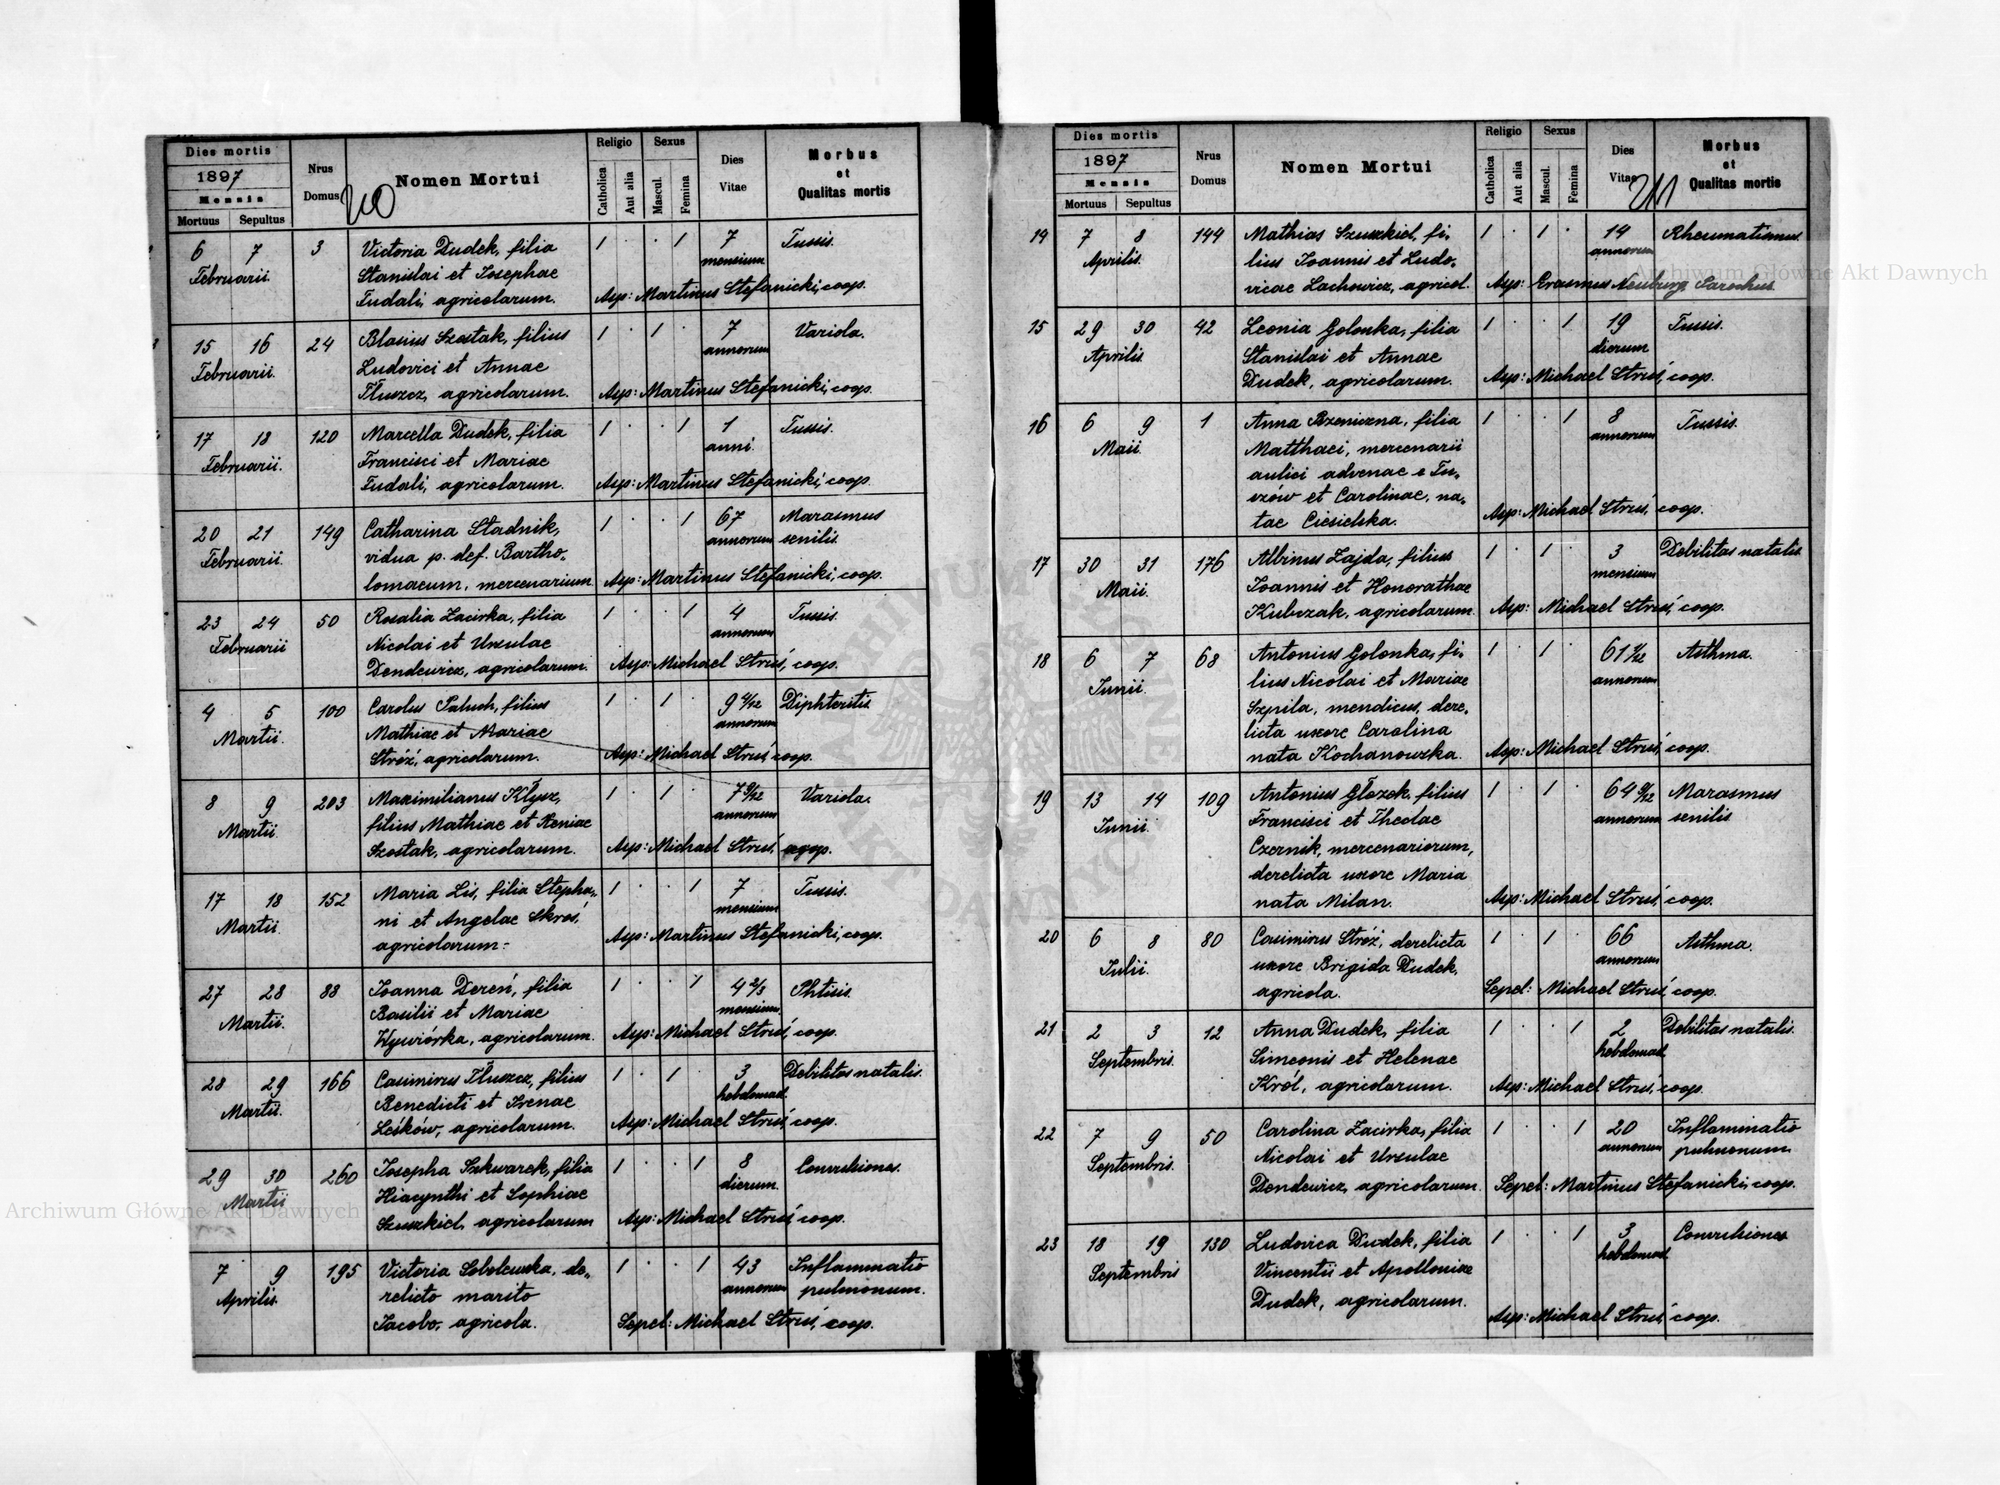 Dies mortis
1897
Mensis
Mortuus Sepultus
Nrus Domus
210
Nomen Mortui
Religio
Catholica
Aut alia
Sexus
Mascul.
Femina
Dies Vitae
Morbus
et
Qualitas mortis
6 7 3 Victoria Dudek, filia 1 · · 1 7 Tussis.
Februarii. Stanislai et Josephae mensium
Fudali, agricolarum. Asp: Martinus Stefanicki, coop.
15 16 24 Blasius Szostak, filius 1 · 1 · 7 Variola.
Februarii. Ludovici et Annae annorum
Tłuszcz, agricolarum. Asp: Martinus Stefanicki, coop.
17 18 120 Marcella Dudek, filia 1 · · 1 1 Tussis.
Februarii. Francisci et Mariae anni.
Fudali, agricolarum. Asp: Martinus Stefanicki, coop.
20 21 149 Catharina Stadnik, 1 · · 1 67 Marasmus
Februarii. vidua p. def. Bartho- annorum senilis.
lomaeum, mercenarium Asp: Martinus Stefanicki, coop.
23 24 50 Rosalia Zacirka, filia 1 · · 1 4 Tussis.
Februarii Nicolai et Ursulae annorum
Dendewicz, agricolarum. Asp: Michael Struś, coop.
4 5 100 Carolus Paluch, filius 1 · 1 · 9 Diphteritis
Martii. Mathiae et Mariae annorum
Stróż, agricolarum. Asp: Michael Struś, coop.
8 9 203 Maximilianus Kłysz, 1 · 1 · 7 9/12 Variola.
Martii. filius Mathiae et Xeniae annorum
Szostak, agricolarum. Asp: Michael Struś, coop.
17 18 152 Maria Lis, filia Stepha- 1 · · 1 7 Tussis.
Martii. ni et Angelae Skroś, mensium
agricolarum. Asp: Martinus Stefanicki, coop.
27 28 88 Joanna Dereń, filia 1 · · 1 4 2/3 Phtisis.
Martii. Basilii et Mariae mensium
Wywiórka, agricolarum. Asp: Michael Struś, coop.
28 29 166 Casimirus Tłuszcz, filius 1 · 1 · 3 Debilitas natalis.
Martii. Benedicti et Irenae hebdomad.
Leśków, agricolarum. Asp: Michael Struś, coop.
29 30 260 Josepha Szkwarek, filia 1 · · 1 8 Convulsiones.
Martii Hiacynthi et Sophiae dierum.
Szuszkiel, agricolarum Asp: Michael Struś, coop.
7 9 195 Victoria Sobolewska, de- 1 · · 1 43 Inflammatio
Aprilis. relicto marito annorum pulmonum.
Jacobo, agricola. Sepel: Michael Struś, coop.
Dies mortis
1897
Mensis
Mortuus Sepultus
Nrus Domus
Nomen Mortui
Religio
Catholica
Aut alia
Sexus
Mascul.
Femina
Dies Vitae
211
Morbus
et
Qualitas mortis
14 7 8 144 Mathias Szuszkiel, fi- 1 · 1 · 14 Rheumatismus.
Aprilis. lius Joannis et Ludo- annorum
vicae Lachowicz, agricol. Asp: Erasmus Neuburg, Parochus.
15 29 30 42 Leonia Golonka, filia 1 · · 1 19 Tussis.
Aprilis. Stanislai et Annae dierum
Dudek, agricolarum. Asp: Michael Struś, coop.
16 6 9 1 Anna Brzeniczna, filia 1 · · 1 8 Tussis.
Maii. Matthaei, mercenarii annorum
aulici advenae e Tu-
szów et Carolinae, na-
tae Ciesielska. Asp: Michael Struś, coop.
17 30 31 176 Albinus Zajda, filius 1 · 1 · 3 Debilitas natalis.
Maii. Joannis et Honorathae mensium
Kubczak, agricolarum. Asp: Michael Struś, coop.
18 6 7 68 Antonius Golonka, fi- 1 · 1 · 61 Asthma.
Junii. lius Nicolai et Mariae annorum
Szpila, mendicus, dere-
licta uxore Carolina
nata Kochanowska. Asp: Michael Struś, coop.
19 13 14 109 Antonius Głozek, filius 1 · 1 · 64 Marasmus
Junii. Francisci et Theclae annorum senilis.
Czernik, mercenariorum,
derelicta uxore Maria
nata Milan. Asp: Michael Struś, coop.
20 6 8 80 Casimirus Stróż, derelicta 1 · 1 · 66 Asthma.
Julii. uxore Brigida Dudek, annorum
agricola. Sepel: Michael Struś, coop.
21 2 3 12 Anna Dudek, filia 1 · · 1 2 Debilitas natalis.
Septembris. Simeonis et Helenae hebdomad.
Król, agricolarum. Asp: Michael Struś, coop.
22 7 9 50 Carolina Zacirka, filia 1 · · 1 20 Inflaminatio
Septembris. Nicolai et Ursulae annorum pulmonum.
Dendewicz, agricolarum. Sepel: Martinus Stefanicki, coop.
23 18 19 130 Ludovica Dudek, filia 1 · · 1 3 Convulsiones
Septembris Vincentii et Apolloniae hebdomad.
Dudek, agricolarum. Asp: Michael Struś, coop.
Archiwum Główne Akt Dawnych
Archiwum Główne Akt Dawnych